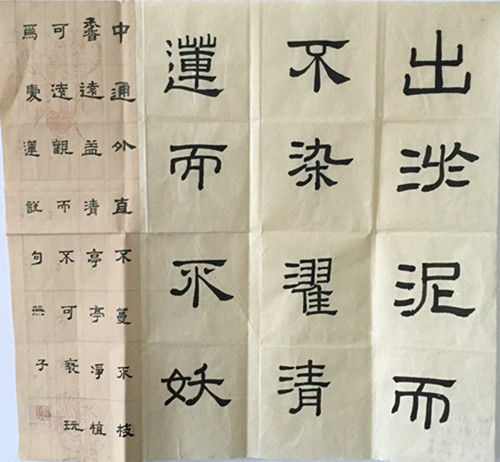 出淤泥而
不染濯清
蓮而不妖
中通外直不蔓不枝
香遠益清亭亭淨植
可遠觀而不可褻玩
爲愛蓮説句燕子